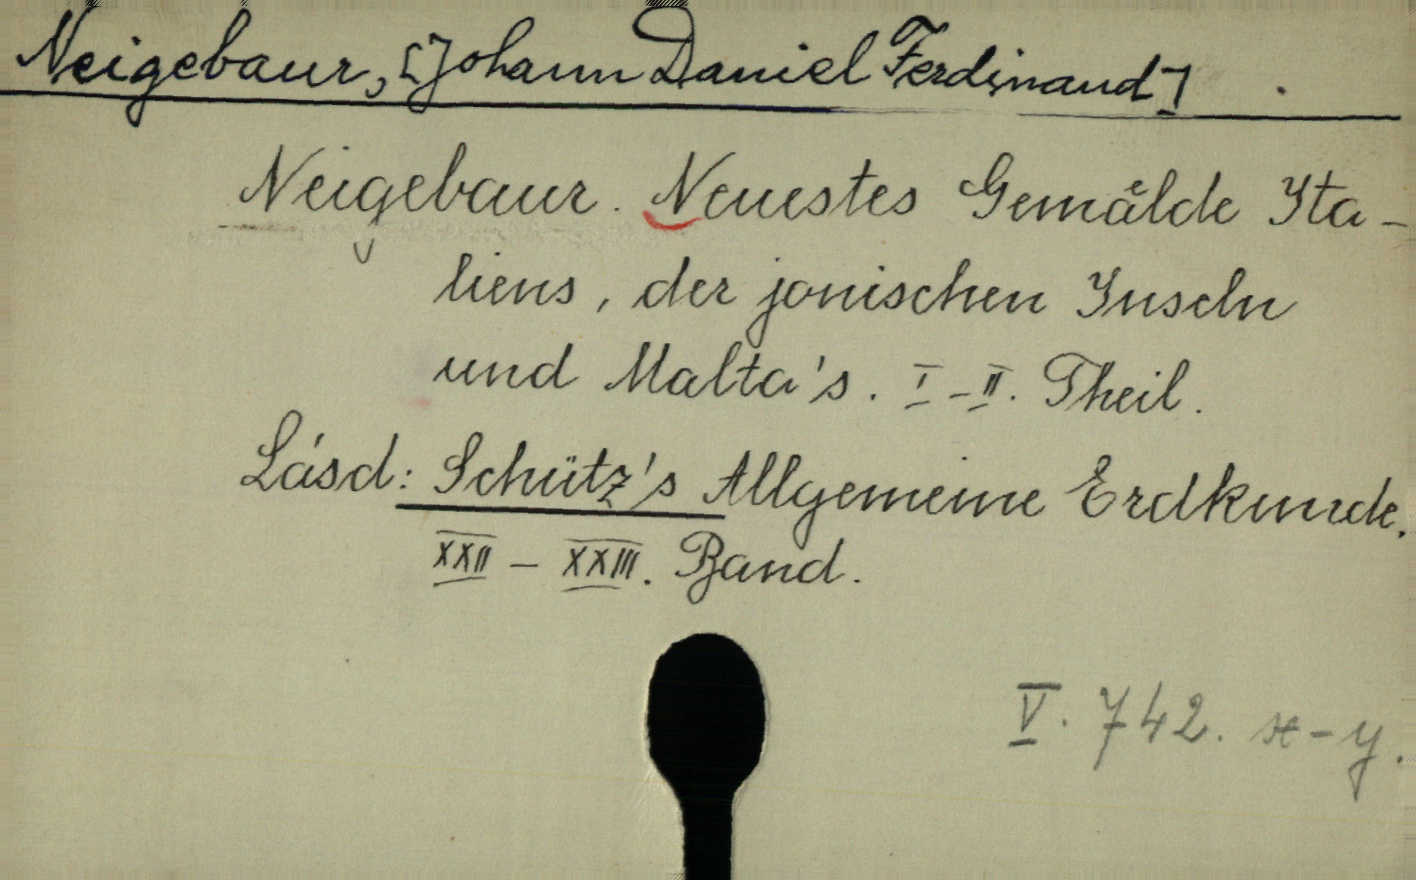 Neigebaur, [Johann Daniel Ferdinand]
Neigebaur. Neuestes Gemälde Ita-
liens, der jonischen Inseln
und Malta's. I-II. Theil.
Lásd: Schütz's Allgemeine Erdkunde.
XXII - XXIII. Band.
V. 742. x-y.